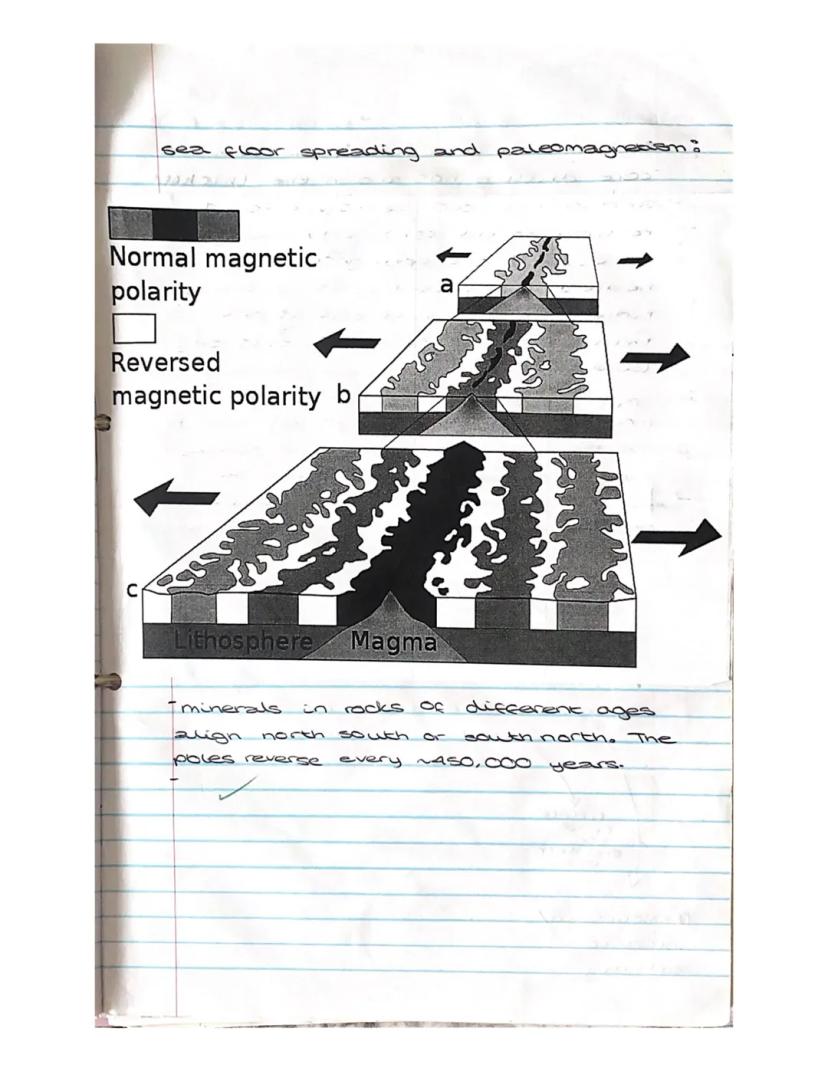 sea floor spreading and paleomagnetism:
Normal magnetic
polarity
Reversed
magnetic polarity
a
b
c
Lithosphere Magma
-minerals in rocks of different ages
align north south or south north. The
poles reverse every ~450,000 years.
-